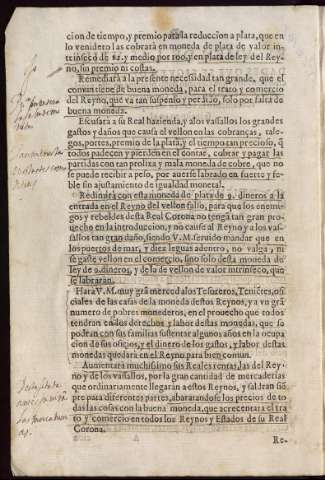 cion de tiempo, y premio para la reduccion a plata, que en
lo venidero las cobrarà en moneda de plata de valor in-
trinseco de 82. y medio por 100, y en plata de ley del Rey-
no, sin premio ni costas.
Remediarà a la presente necesidad tan grande, que el
comun tiene de buena moneda, para el trato y comercio
del Reyno, que và tan suspenso y perdido, solo por falta de
buena moneda.
Escusarà a su Real hazienda, y a los vassallos los grandes
gastos y daños que causa el vellon en las cobranças, tale-
gos, portes, premio de la plata, y el tiempo tan precioso, q̃
todos padecen y pierden en el contar, cobrar y pagar las
partidas con tan prolixa y mala moneda de cobre, que no
se puede recibir a peso, por auerse labrado en fuerte y fe-
ble sin ajustamiento de igualdad monetal.
Redimirà con esta moneda de plata de 9. dineros a la
entrada en el Reyno del vellon falso, para que los enemi-
gos y rebeldes desta Real Corona no tengã tan gran pro-
uecho en la introduccion, y no cause al Reyno y a los vas-
sallos tan gran daño, siendo V.M. seruido mandar que en
los puertos de mar, y diez leguas adentro, no valga, ni
se gaste vellon en el comercio, sino solo desta moneda de
ley de 9. dineros, y de la de vellon de valor intrinseco, que
se labrarán.
Harà V.M. muy grã merced a los Tesoreros, Tenietes, ofi-
ciales de las casas de la moneda destos Reynos, y a vn grã
numero de pobres monederos, en el prouecho que todos
tendràn en los derechos y labor destas monedas, que so
podràn con sus familias sustentar algunos años en la ocupa
cion de sus oficios, y el dinero de los gastos, y labor destas
monedas quedarà en el Reyno para bien comun.
Aumentarà muchissimo sus Reales rentas, las del Rey-
no y de los vassallos, por la gran cantidad de mercaderias
que ordinariamente llegaràn a estos Reynos, y saldràn siẽ
pre para diferentes partes, abaratandose los precios de to
das las cosas con la buena moneda, que acrecentarà el tra
to y comercio en todos los Reynos y Estados de su Real
Corona.
Re-